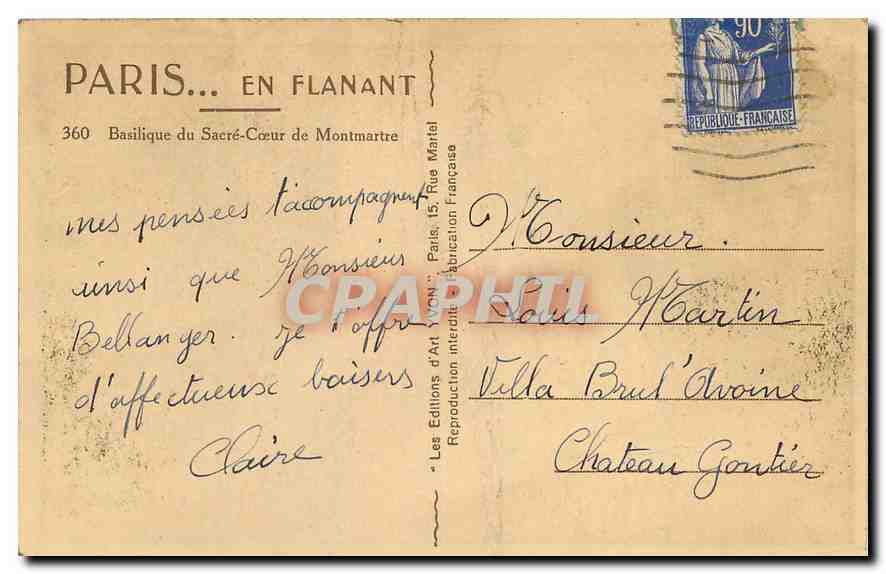 PARIS... EN FLANANT
360 Basilique du Sacré-Cœur de Montmartre
mes pensées t'accompagnent
ainsi que Monsieur
Bellanger. Je t'offre
d'affectueux baisers
Claire
"Les Editions d'Art YVON", Paris, 15, Rue Martel
Reproduction interdite. Fabrication Française
90
REPUBLIQUE-FRANÇAISE
Monsieur.
Louis Martin
Villa Brul'Avoine
Chateau Gontier
CPAPHIL